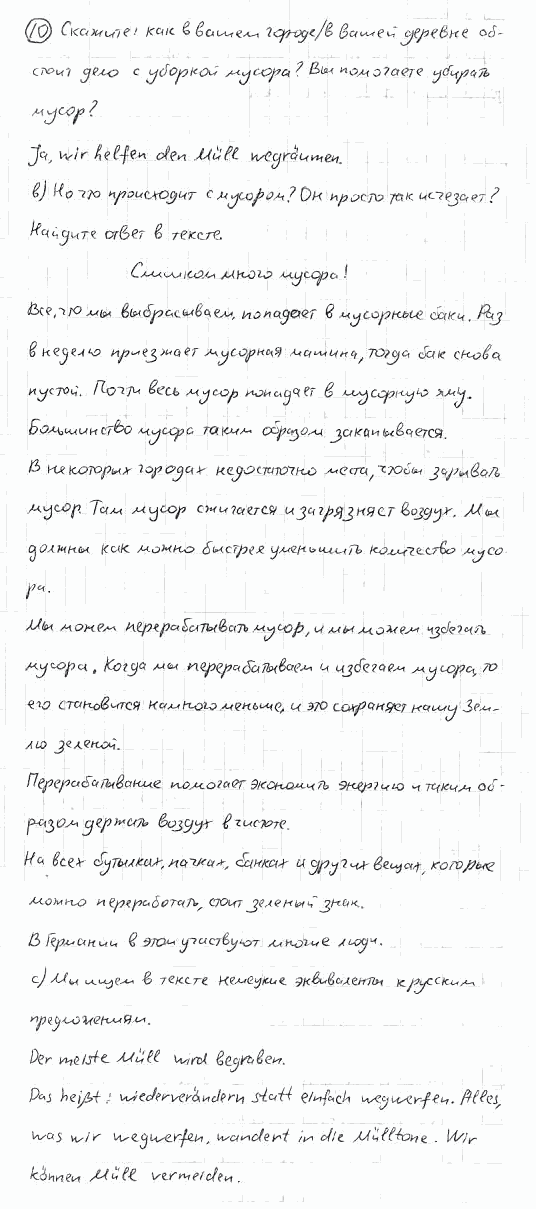 10) Скажите: как в вашем городе/в вашей деревне об-
стоит дело с уборкой мусора? Вы помогаете убирать
мусор?
Ja, wir helfen den Müll wegräumen.
в) Но что происходит с мусором? Он просто так исчезает?
Найдите ответ в тексте.
Слишком много мусора!
Все, что мы выбрасываем, попадает в мусорные баки. Раз
в неделю приезжает мусорная машина, тогда бак снова
пустой. Почти весь мусор попадает в мусорную яму.
Большинство мусора таким образом закапывается.
В некоторых городах недостаточно места, чтобы зарывать
мусор. Там мусор сжигается и загрязняет воздух. Мы
должны как можно быстрее уменьшить количество мусо
ра.
Мы можем перерабатывать мусор, и мы можем избегать
мусора. Когда мы перерабатываем и избегаем мусора, то
его становится намного меньше, и это сохраняет нашу Зем-
лю зеленой.
Перерабатывание помогает экономить энергию и таким об-
разом держать воздух в чистоте.
На всех бутылках, пачках, банках и других вещах, которые
можно переработать, стоит зеленый знак.
В Германии в этом участвуют многие люди.
с) Мы ищем в тексте немецкие эквиваленты к русским
предложениям.
Der meiste Müll wird begraben.
Das heißt: wiederverändern statt einfach wegwerfen. Alles,
was wir wegwerfen, wandert in die Mülltone. Wir
können Müll vermeiden.